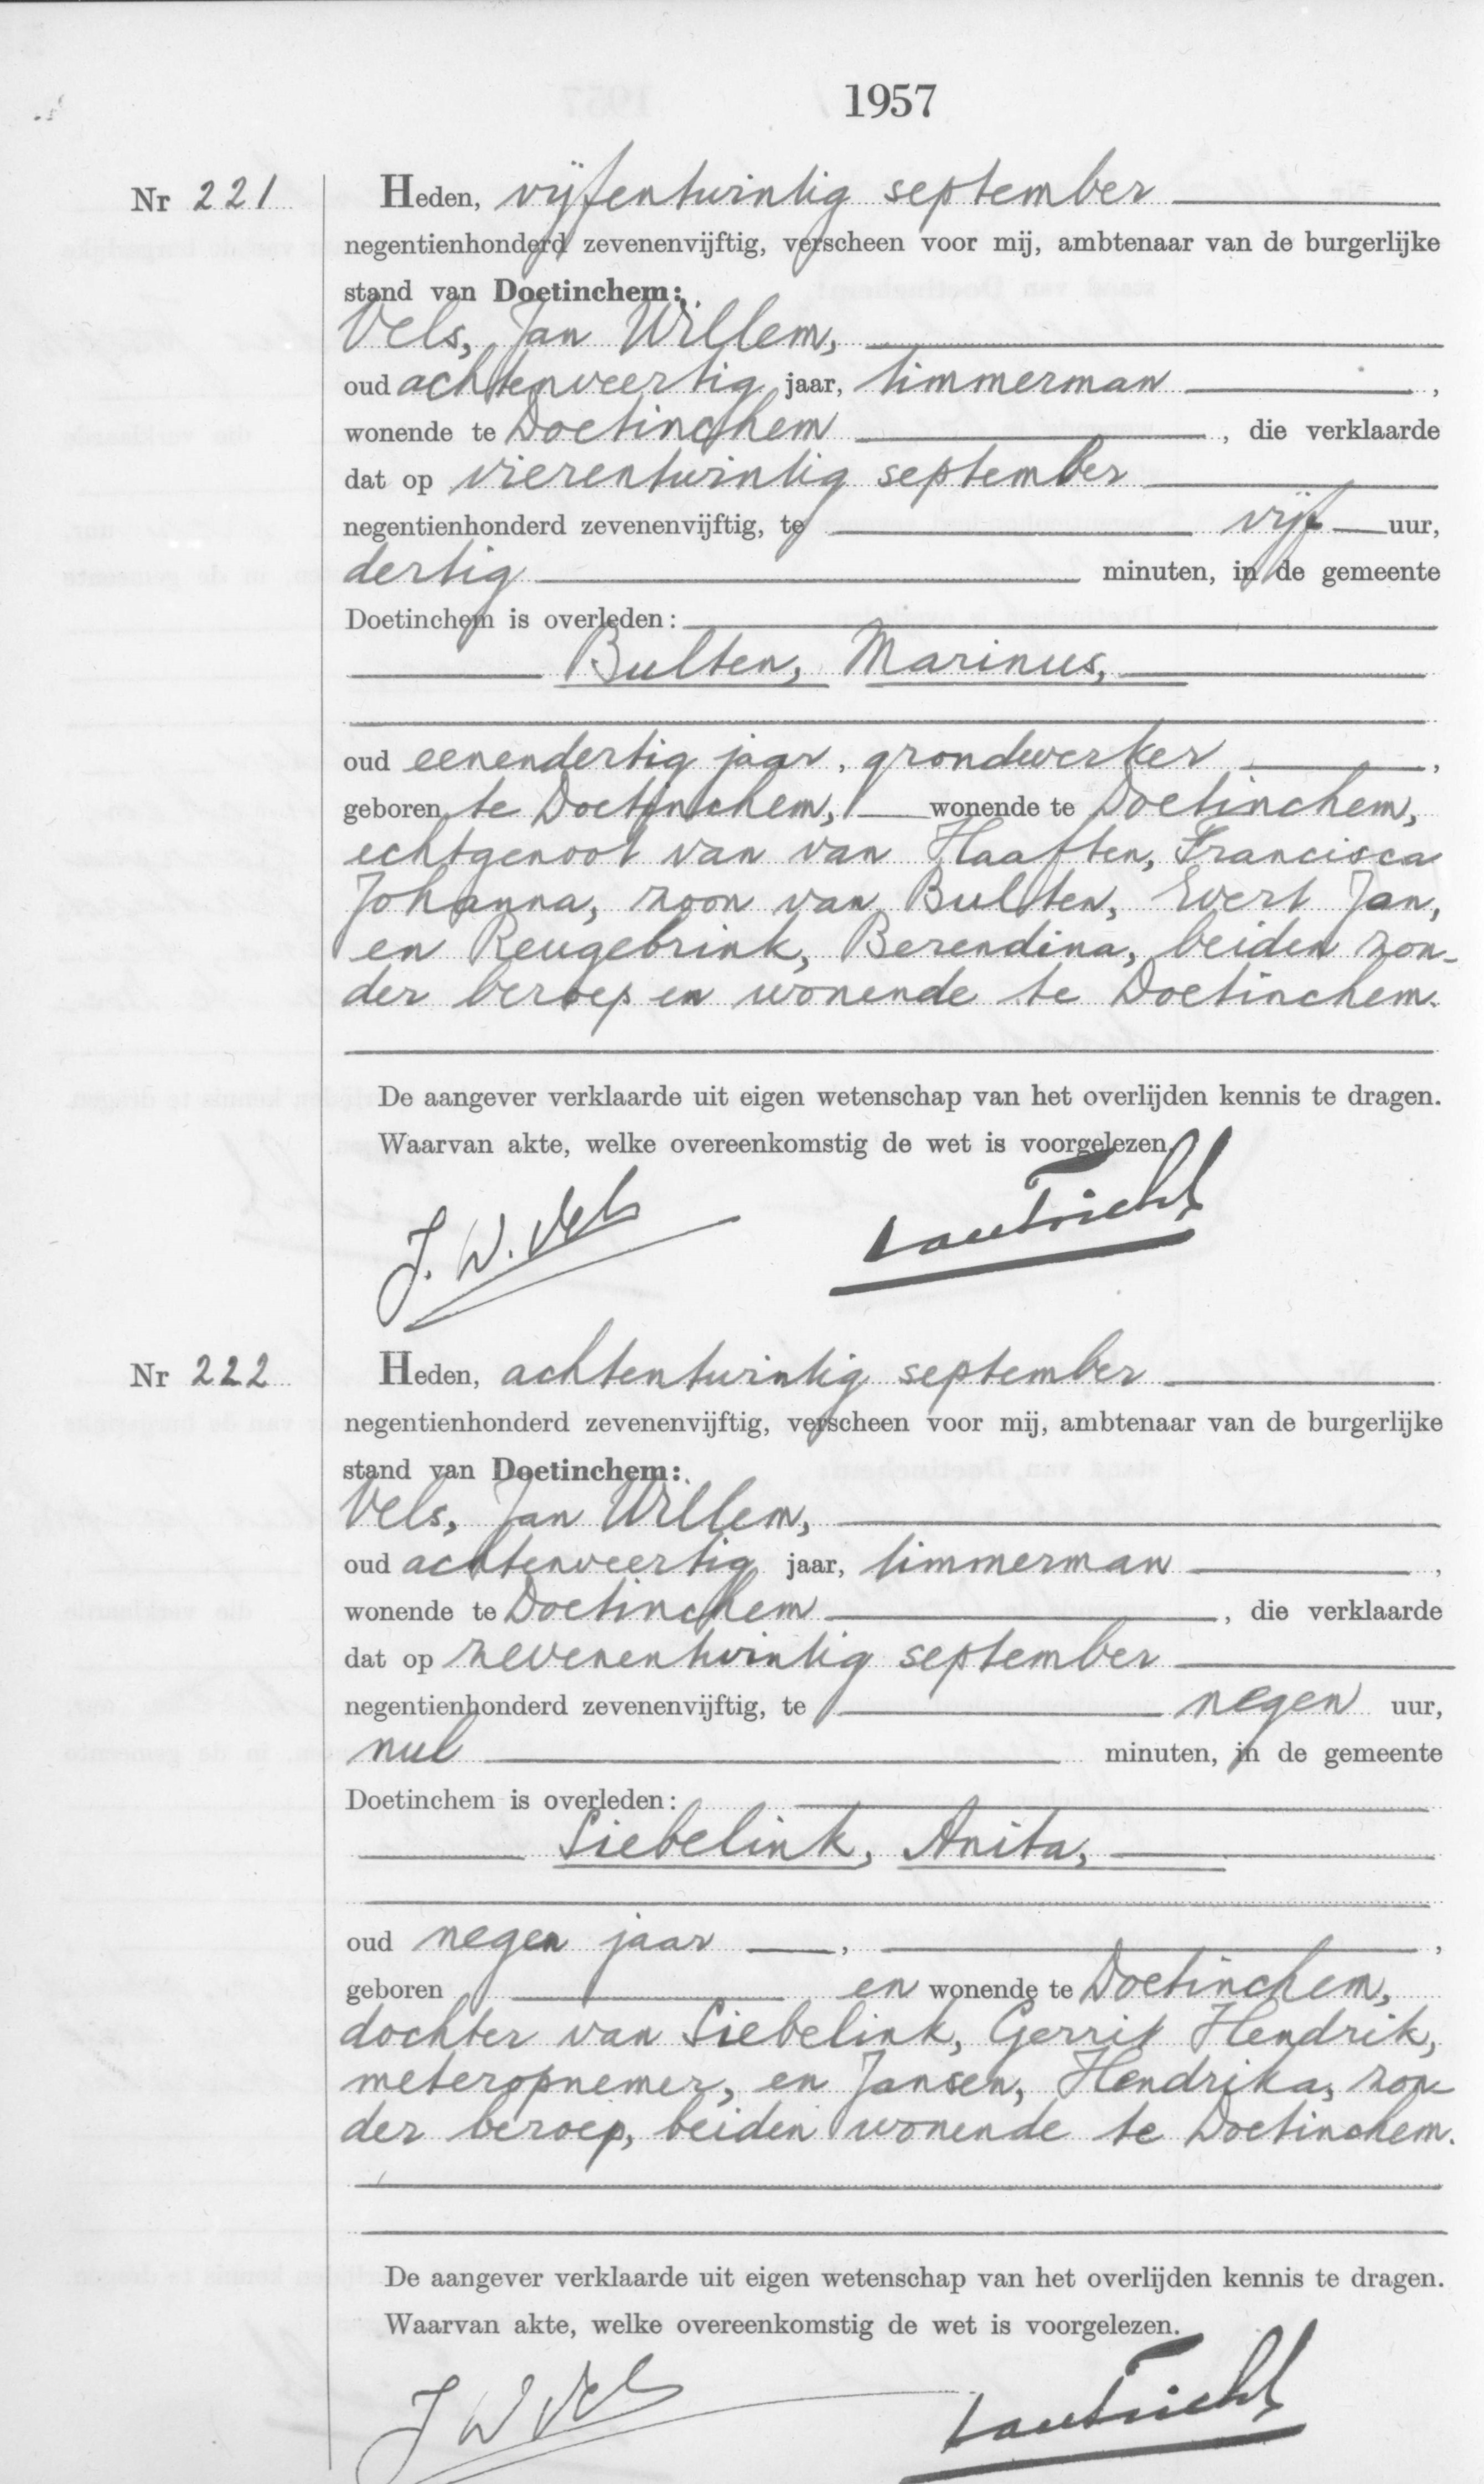 1957
Nr 221
Heden, vijfentwintig september
negentienhonderd zevenenvijftig, verscheen voor mij, ambtenaar van de burgerlijke
stand van Doetinchem:
Vels, Jan Willem,
oud achtenveertig jaar, timmerman ,
wonende te Doetinchem , die verklaarde
dat op vierentwintig september
negentienhonderd zevenenvijftig, te vijf uur,
dertig minuten, in de gemeente
Doetinchem is overleden:
Bulten, Marinus,
oud eenendertig jaar, grondwerker ,
geboren te Doetinchem, wonende te Doetinchem,
echtgenoot van van Haaften, Francisca
Johanna, zoon van Bulten, Evert Jan,
en Reugebrink, Berendina, beiden zon-
der beroep en wonende te Doetinchem.
De aangever verklaarde uit eigen wetenschap van het overlijden kennis te dragen.
Waarvan akte, welke overeenkomstig de wet is voorgelezen.
J. W. Vels
Nr 222
Heden, achtentwintig september
negentienhonderd zevenenvijftig, verscheen voor mij, ambtenaar van de burgerlijke
stand van Doetinchem:
Vels, Jan Willem,
oud achtenveertig jaar, timmerman ,
wonende te Doetinchem , die verklaarde
dat op zevenentwintig september
negentienhonderd zevenenvijftig, te negen uur,
nul minuten, in de gemeente
Doetinchem is overleden:
Siebelink, Anita,
oud negen jaar , ,
geboren en wonende te Doetinchem,
dochter van Siebelink, Gerrit Hendrik,
meteropnemer, en Jansen, Hendrika, zon-
der beroep, beiden wonende te Doetinchem.
De aangever verklaarde uit eigen wetenschap van het overlijden kennis te dragen.
Waarvan akte, welke overeenkomstig de wet is voorgelezen.
J W Vels